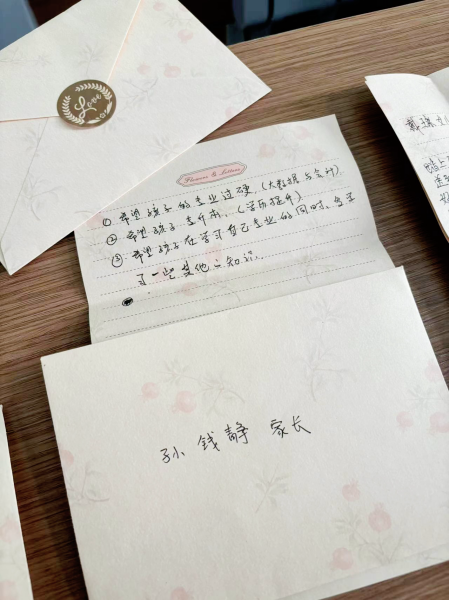 Love
Flowers & Letters
① 希望孩子的专业过硬。(大数据与会计)
② 希望孩子专升本。(学历提升)
③ 希望孩子在学习自己专业的同时,多学
习一些其他的知识。
孙钱静 家长
戴